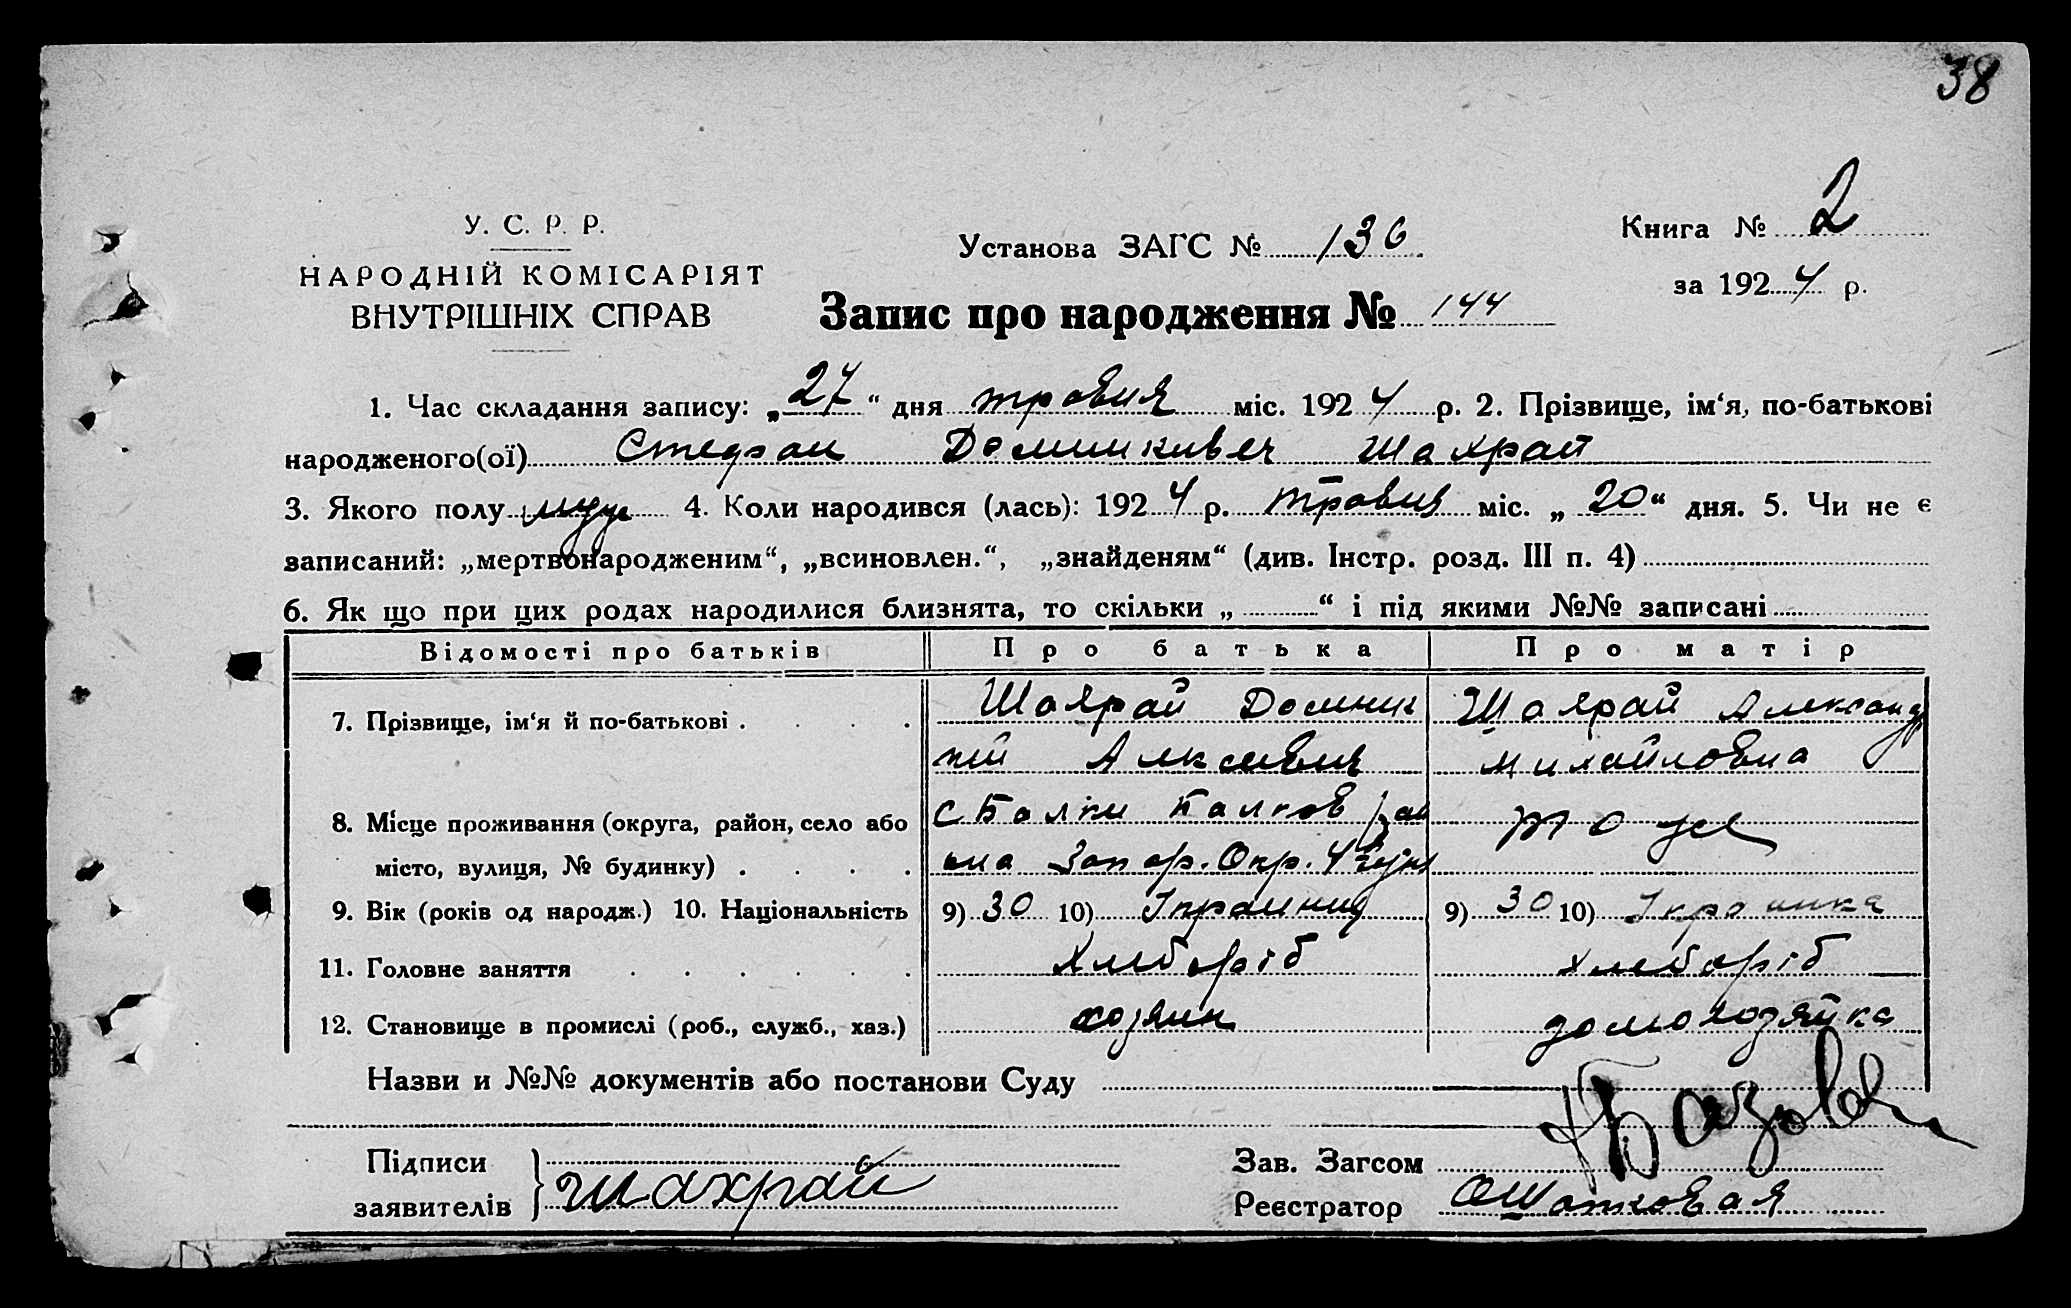 38
У. С. Р. Р.
НАРОДНІЙ КОМІСАРІЯТ
ВНУТРІШНІХ СПРАВ
Установа ЗАГС № 136
Книга № 2
за 1924 р.
Запис про народження № 144
1. Час складання запису: „27“ дня травня міс. 1924 р. 2. Прізвище, ім‘я, по-батькові
народженого(ої) Стефан Доминкивеч Шахрай
3. Якого полу муж 4. Коли народився (лась): 1924 р. травня міс. „20“ дня. 5. Чи не є
записаний: „мертвонародженим“, „всиновлен.“, „знайденям“ (див. Інстр. розд. III п. 4)
6. Як що при цих родах народилися близнята, то скільки „ “ і під якими №№ записані
Відомості про батьків Про батька Про матір
7. Прізвище, ім‘я й по-батькові . . . . Шахрай Домник Шахрай Александ
кий Алксеевич Михайловна
8. Місце проживання (округа, район, село або с Балки Балков тоже
місто, вулиця, № будинку) . . . . Запор. Окр.
9. Вік (років од народж.) 10. Національність 9) 30 10) 9) 30 10)
11. Головне заняття . . . . . . Хлебороіб хлебороіб
12. Становище в промислі (роб., служб., хаз.) хозяин домохозяйка
Назви и №№ документів або постанови Суду
Підписи
заявителів } Шахрай
Зав. Загсом
Реєстратор ОШатковая